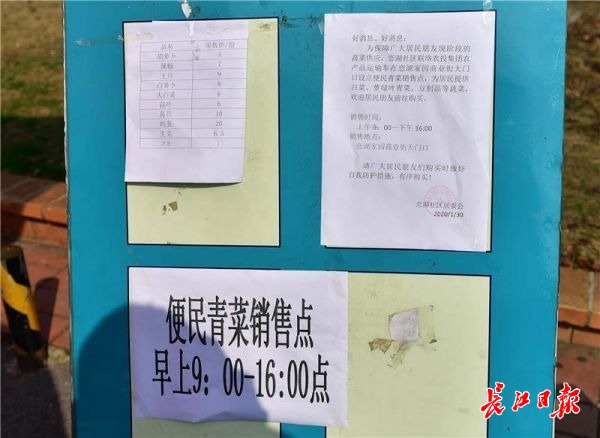 品名 零售价/份
胡萝卜 5
辣椒 7
土豆 9
白萝卜 6
大白菜 6
莴苣 10
鸡蛋 20
生菜 6.5
好消息、好消息：
为保障广大居民朋友现阶段的
蔬菜供应，恋湖社区联络农投集团农
产品运输车在恋湖家园商业街大门
口设立便民青菜销售点，为居民提供
白菜、萝绿叶青菜、豆制品等蔬菜，
欢迎居民朋友前往购买。
销售时间：
上午9：00—下午16:00
销售地点：
恋湖家园商业街大门口
请广大居民朋友们购买时做好
自我防护措施，有序购买！
恋湖社区居委会
2020/1/30
便民青菜销售点
早上9：00-16:00点
长江日报